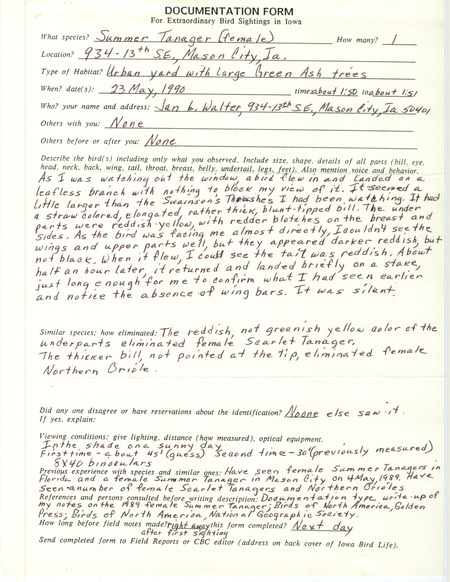 DOCUMENTATION FORM
For Extraordinary Bird Sightings in Iowa
What species? Summer Tanager (female) How many? 1
Location? 934-13th SE, Mason City, Ia.
Type of Habitat? Urban yard with large Green Ash trees
When? date(s): 23 May, 1990 time: about 1:50 to about 1:51
Who? your name and address: Jan L. Walter, 934-13th S.E., Mason City, Ia 50401
Others with you: None
Others before or after you: None
Describe the bird(s) including only what you observed. Include size, shape, details of all parts (bill, eye,
head, neck, back, wing, tail, throat, breast, belly, undertail, legs, feet). Also mention voice and behavior.
As I was watching out the window, a bird flew in and landed on a
leafless branch with nothing to block my view of it. It seemed a
little larger than the Swainson's Thrushes I had been watching. It had
a straw colored, elongated, rather thick, blunt-tipped bill. The under
parts were reddish-yellow, with redder blotches on the breast and
sides. As the bird was facing me almost directly, I couldn't see the
wings and upper parts well, but they appeared darker reddish, but
not black. When it flew, I could see the tail was reddish. About
half an hour later, it returned and landed briefly on a stake,
just long enough for me to confirm what I had seen earlier
and notice the absence of wing bars. It was silent.
Similar species: how eliminated: The reddish, not greenish yellow color of the
underparts eliminated female Scarlet Tanager.
The thicker bill, not pointed at the tip, eliminated female
Northern Oriole.
Did any one disagree or have reservations about the identification? Noone else saw it.
If yes, explain:
Viewing conditions: give lighting, distance (how measured), optical equipment.
In the shade on a sunny day
First time - about 45' (guess) Second time - 30' (previously measured)
8X40 binoculars
Previous experience with species and similar ones: Have seen female Summer Tanagers in
Florida and a female Summer Tanager in Mason City on 4 May, 1989. Have
seen a number of female Scarlet Tanagers and Northern Orioles.
References and persons consulted before writing description: Documentation type write-up of
my notes on the 1989 female Summer Tanager; Birds of North America, Golden
Press; Birds of North America, National Geographic Society.
How long before field notes made? right away this form completed? Next day
after first sighting
Send completed form to Field Reports or CBC editor (address on back cover of Iowa Bird Life).